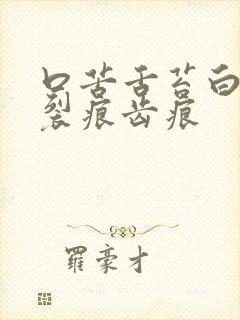 口苦舌苔白
裂痕齿痕
羅豪才